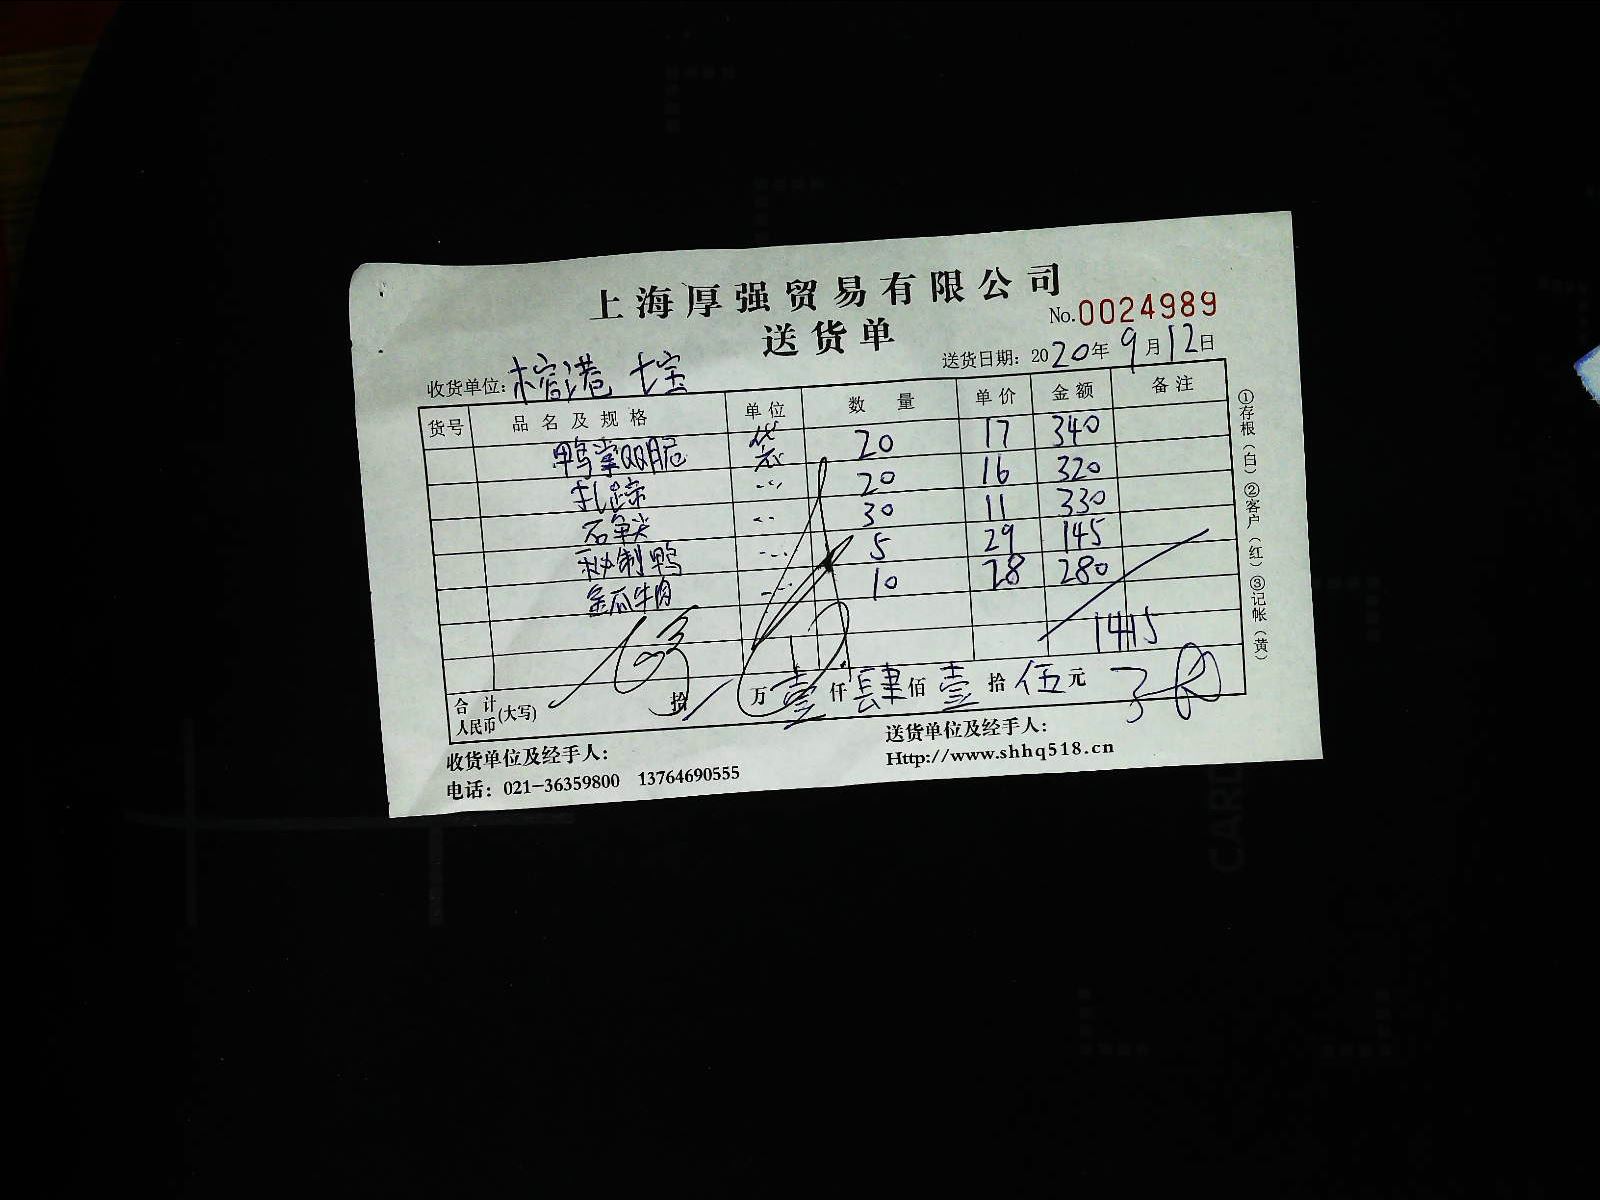 上海厚强贸易有限公司
送货单
No.0024989
收货单位: 榕港 七宝
送货日期: 2020年9月12日
货号 品名及规格 单位 数量 单价 金额 备注
鸭掌QQ脆 袋 20 17 340
扎蹄 〃 20 16 320
石斛尖 〃 30 11 330
秘制鸭 〃 5 29 145
金瓜牛肉 〃 10 28 280
1415
合计人民币(大写) 拾 万 壹 仟 肆 佰 壹 拾 伍 元
收货单位及经手人:
送货单位及经手人:
电话: 021-36359800 13764690555
Http://www.shhq518.cn
①存根(白)②客户(红)③记帐(黄)